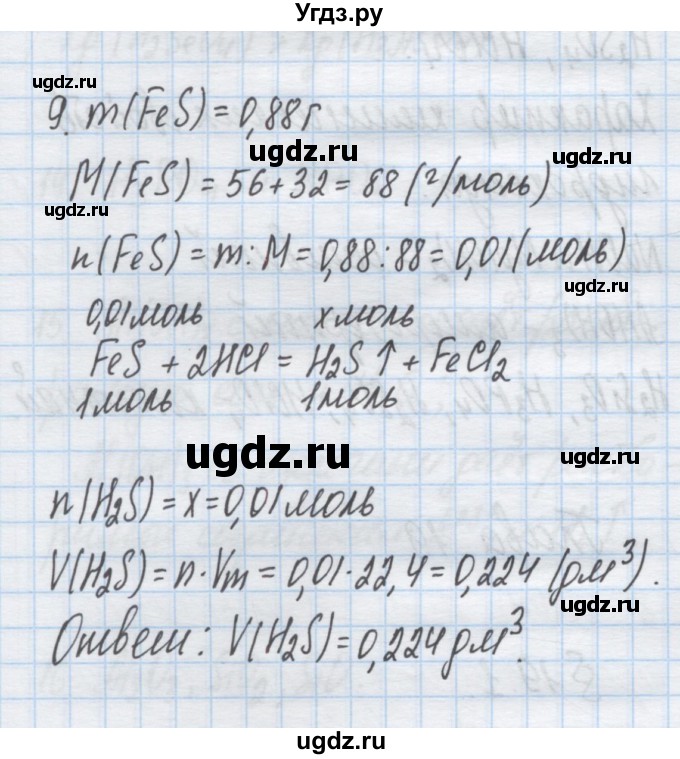 Угдз.ру
ugdz.ru
9. m(FeS) = 0,88 г
ugdz.ru
M(FeS) = 56 + 32 = 88 (г/моль)
ugdz.ru
ugdz.ru
n(FeS) = m : M = 0,88 : 88 = 0,01 (моль)
ugdz.ru
0,01 моль x моль
FeS + 2HCl = H₂S ↑ + FeCl₂
1 моль 1 моль
ugdz.ru
ugdz.ru
n(H₂S) = x = 0,01 моль
V(H₂S) = n · Vm = 0,01 · 22,4 = 0,224 (дм³).
ugdz.ru
Ответ: V(H₂S) = 0,224 дм³.
ugdz.ru
ugdz.ru